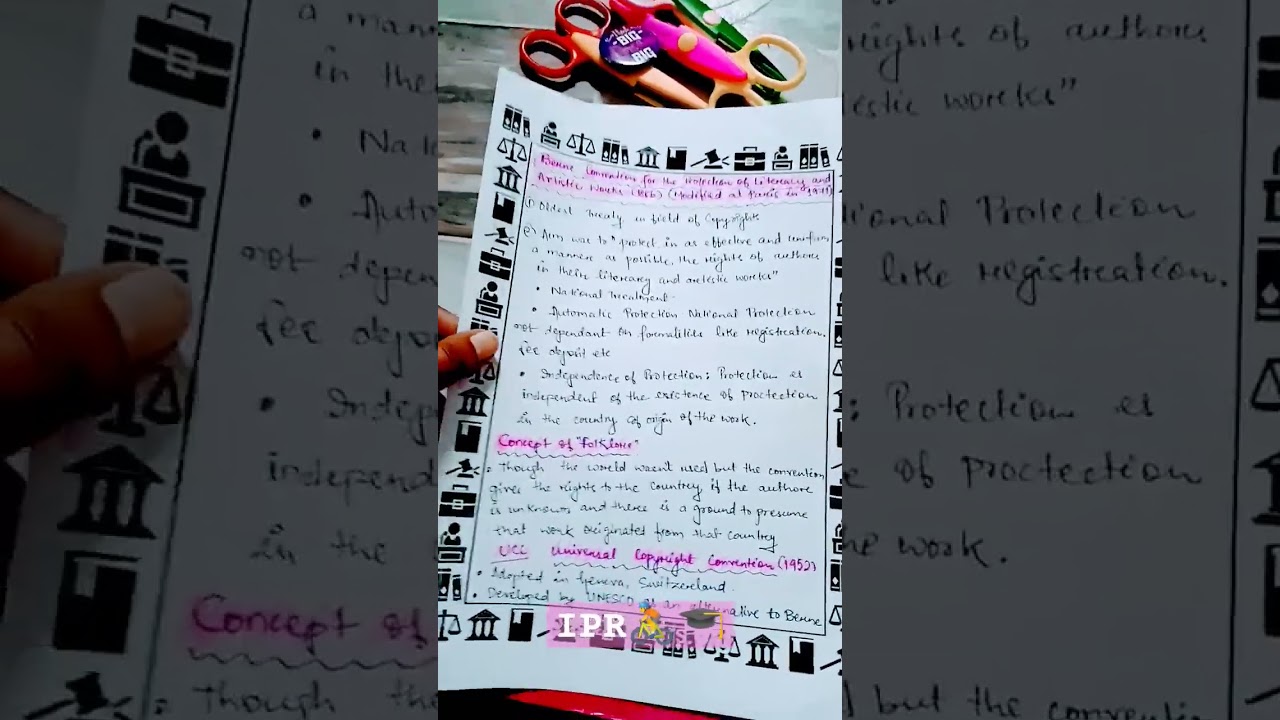 Berne Convention for the Protection of Literary and
Artistic Works (1886) (Modified at Paris in 1971)
① Oldest Treaty in field of Copyrights
② Aim was to "protect in as effective and uniform
a manner as possible, the rights of authors
in their literary and artistic works"
• National Treatment.
• Automatic Protection National Protection
not dependant on formalities like registration.
fee deposit etc
• Independence of Protection: Protection is
independent of the existence of proctection
in the country of origin of the work.
Concept of "Folklore"
• Though the world wasn't used but the convention
gives the rights to the country if the author
is unknown and there is a ground to presume
that work originated from that country
UCC Universal Copyright Convention (1952)
• Adopted in Geneva, Switzerland.
• Developed by UNESCO as an alternative to Berne
IPR